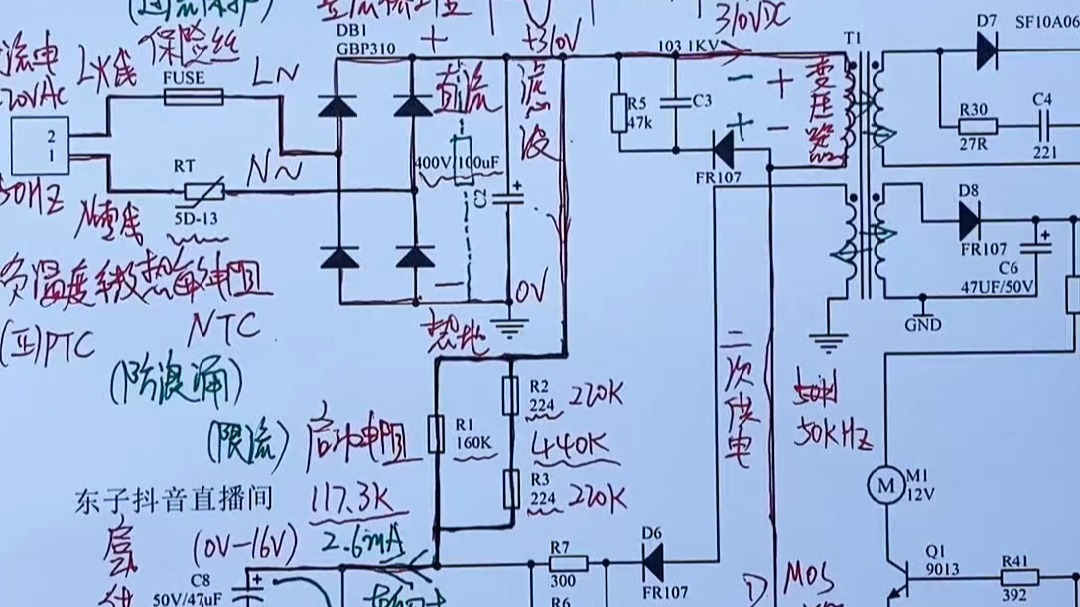 310VDC
DB1
GBP310
+
+310V
103 1KV
T1
D7
SF10A06
保险丝
L火线
FUSE
LN
直流
滤波
-
+
变压器
R5
47k
C3
+
-
R30
27R
C4
221
2
1
RT
N~
400V/100uF
C2
+
FR107
50HZ
5D-13
N零线
D8
FR107
+
C6
47UF/50V
负温度系数热敏电阻
-
0V
GND
(正)PTC
NTC
热地
二次供电
(防浪涌)
R2
224
220K
50H
50KHz
(限流)
启动电阻
R1
160K
440K
M
M1
12V
东子抖音直播间
117.3K
R3
224
220K
(0V-16V)
2.6mA
R7
300
D6
FR107
Q1
9013
R41
392
C8
50V/47uF
+
R6
D
MOS